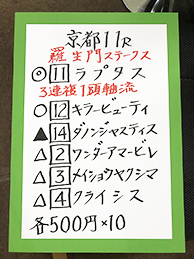 京都11R
羅生門ステークス
◎11ラプタス
3連複1頭軸流
○12キラービューティ
▲14ダノンジャスティス
△2ワンダーアマービレ
△3メイショウヤクシマ
△4クライシス
各500円×10